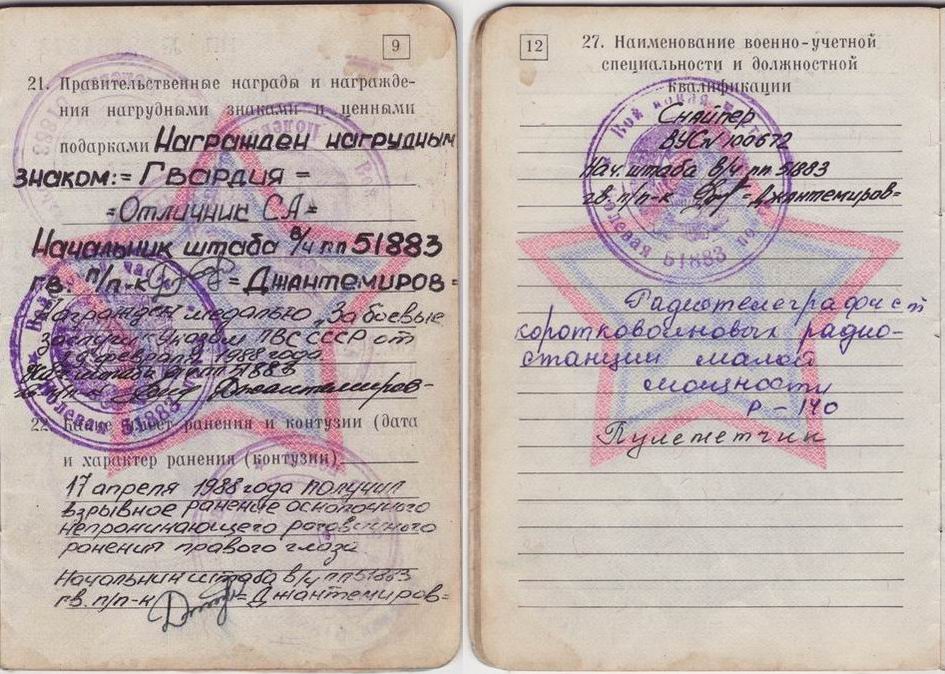 9
21. Правительственные награды и награжде-
ния нагрудными знаками и ценными
подарками Награжден нагрудным
знаком:= Гвардия =
=Отличник СА=
Начальник штаба в/ч пп 51883
гв. п/п-к =Джантемиров=
Награжден медалью „За боевые
заслуги" Указом ПВС СССР от
февраля 1988 года
штаба в/ч пп 51883
п/п-к Джантемиров-
22. Какие имеет ранения и контузии (дата
и характер ранения (контузии)
17 апреля 1988 года получил
взрывное ранение осколочного
непроникающего роговичного
ранения правого глаза
Начальник штаба в/ч пп 51883
гв. п/п-к =Джантемиров=
Полевая 51883
12
27. Наименование военно-учетной
специальности и должностной
квалификации
Снайпер
ВУС № 100672
Нач. штаба в/ч пп 51883
гв. п/п-к =Джантемиров=
полевая 51883
Радиотелеграфист
коротковолновых радио-
станции малой
мощности
Р-140
Пулеметчик